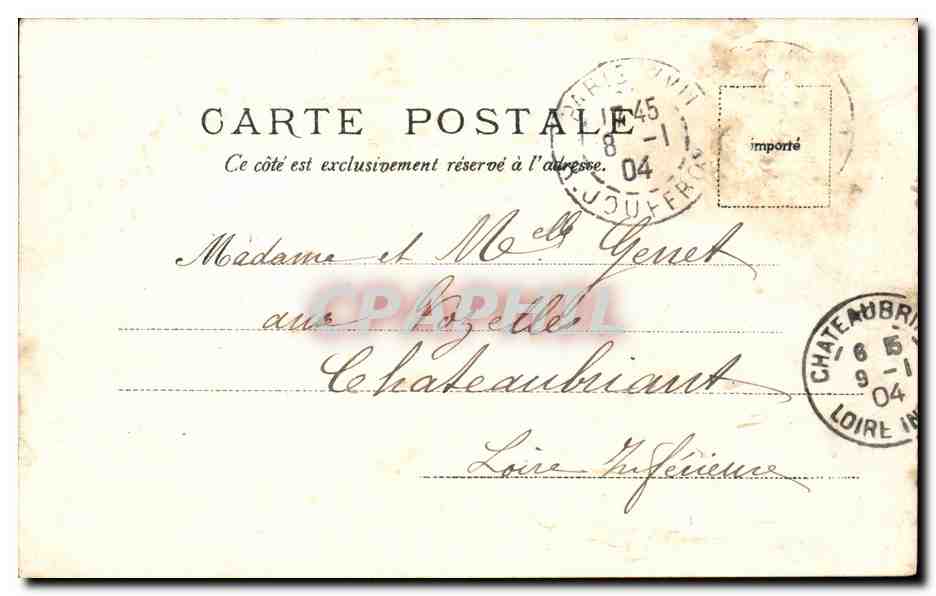 CARTE POSTALE
Ce côté est exclusivement réservé à l'adresse.
importé
17 45
8 -1
04
Madame et Melle Genet
aux Vozelles
CPAPHIL
Chateaubriant
Loire Inférieure
CHATEAUBRIA
6 15
9 -1
04
LOIRE IN